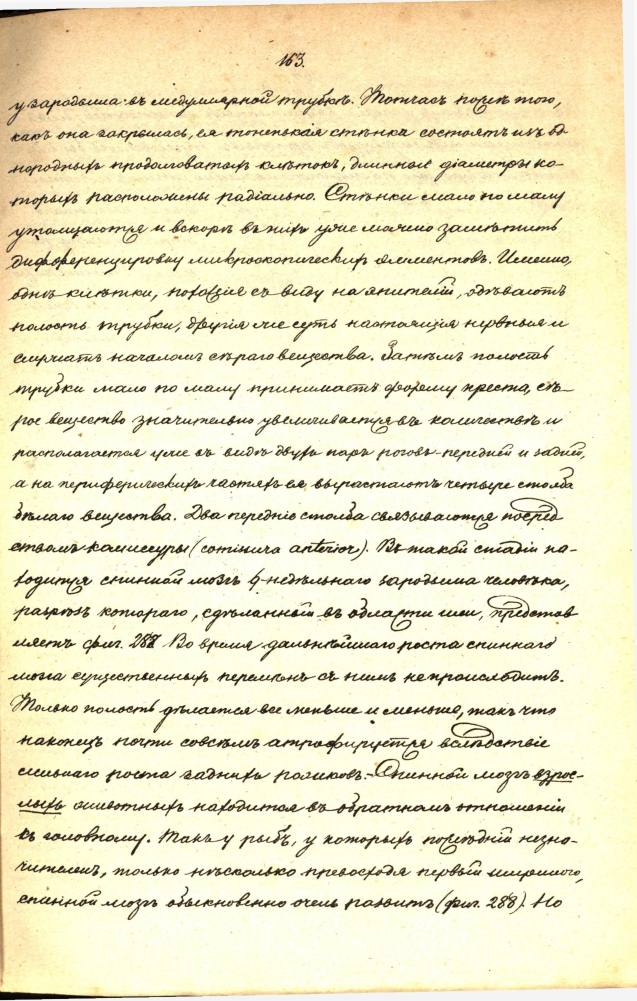 163.
у зародыша въ медуллярной трубкѣ. Тотчасъ послѣ того,
какъ она закрылась, ея тоненькая стѣнка состоятъ изъ од
нородныхъ продолговатыхъ клѣтокъ, длинные діаметры ко-
торыхъ расположены радіально. Стѣнки мало по малу
утолщаются и вскорѣ въ нихъ уже можно замѣтить
дифференцировку микроскопическихъ элементовъ. Именно,
однѣ клѣтки, похожія съ виду на эпителій, одѣваютъ
полость трубки, другія же суть настоящія нервныя и
служатъ началомъ сѣраго вещества. Затѣмъ полость
трубки мало по малу принимаетъ форму креста, сѣ-
рое вещество значительно увеличивается въ количествѣ и
располагается уже въ видѣ двухъ паръ роговъ - передней и задней,
а на периферическихъ частяхъ ея вырастаютъ четыре столба
бѣлаго вещества. Два передніе столба связываются посред
ствомъ комиссуры (comissura anterior). Въ такой стадіи на-
ходится спинной мозгъ 4-недѣльнаго зародыша человѣка,
разрѣзъ котораго, сдѣланный въ области шеи, представ
ляетъ фиг. 287. Во время дальнѣйшаго роста спиннаго
мозга существенныхъ перемѣнъ съ нимъ не происходитъ.
Только полость дѣлается все меньше и меньше, такъ что
наконецъ почти совсѣмъ атрофируется вслѣдствіе
сильнаго роста заднихъ роликовъ. - Спинной мозгъ взрос-
лыхъ животныхъ находится въ обратномъ отношеніи
къ головному. Такъ у рыбъ, у которыхъ послѣдній незна-
чителенъ, только нѣсколько превосходя первый шириною,
спинной мозгъ обыкновенно очень развитъ (фиг. 288). Но